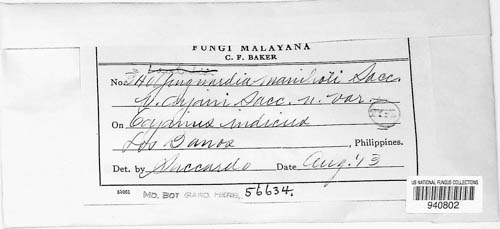 FUNGI MALAYANA
C. F. BAKER
No. Manihoti Sacc.
v. Cajani Sacc. n. var.
On Cajanus indicus
Los Banos, Philippines.
Det. by Saccardo Date Aug. '13
MO. BOT GARD. HERB. 56634.
US NATIONAL FUNGUS COLLECTIONS
940802